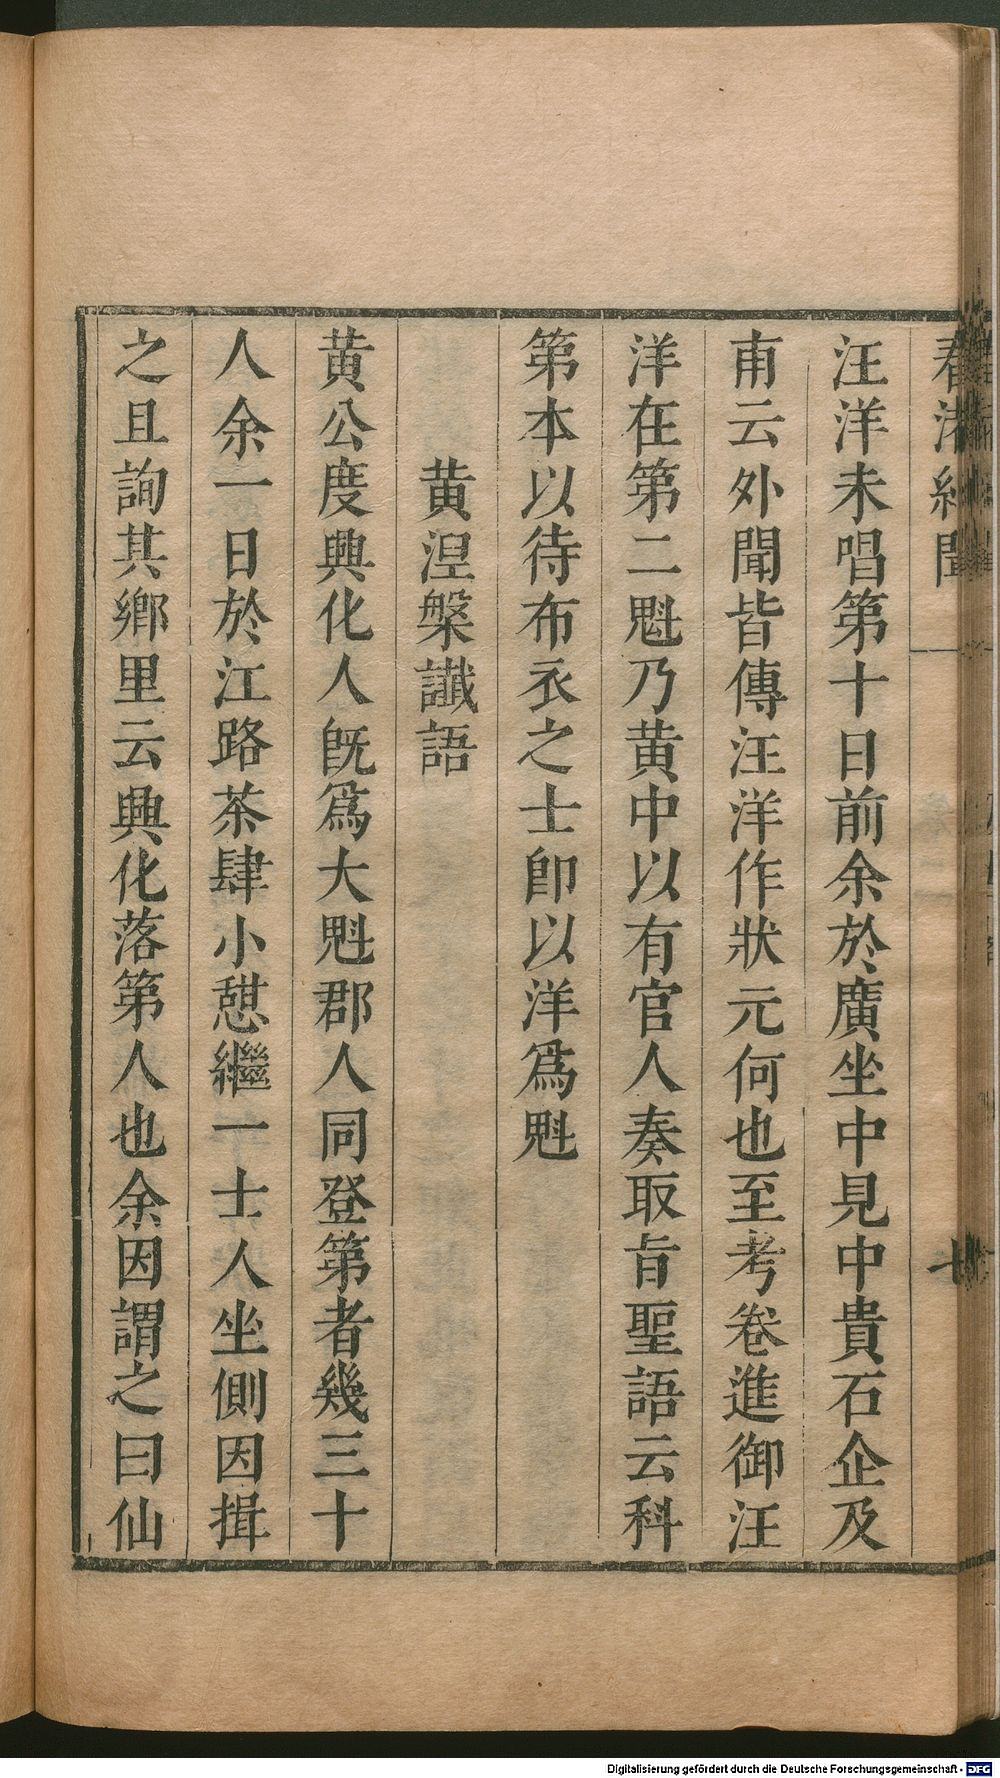 春渚紀聞
汪洋未唱第十日前余於廣坐中見中貴石企及
甫云外聞皆傳汪洋作狀元何也至考卷進御汪
洋在第二魁乃黄中以有官人奏取旨聖語云科
第本以待布衣之士卽以洋爲魁
黄涅槃讖語
黄公度興化人旣爲大魁郡人同登第者幾三十
人余一日於江路茶肆小憇繼一士人坐側因揖
之且詢其鄉里云興化落第人也余因謂之曰仙
Digitalisierung gefördert durch die Deutsche Forschungsgemeinschaft - DFG